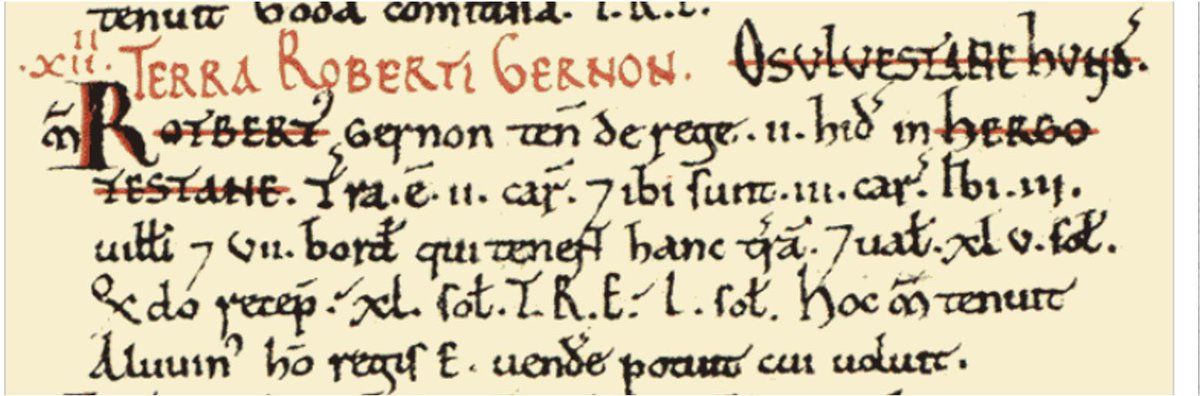 tenuit Goda comitissa. T.R.E.
.xii.ii TERRA ROBERTI GERNON. OSVLVESTANE hVNḊ.
m̄ ROTBERT᾽ Gernon ten̄ de rege. .ii. hid᾽ in hERGO
TESTANE. T᾽ra .ē. ii. car᾽. ⁊ ibi sunt .iii. car᾽. Ibi .iii.
uilłi ⁊ vii. borđ qui teneɲt hanc t᾽rā. ⁊ uał. xl v. soł.
Qdo recep̄. xl. soł. T.R.E. l. soł. hoc m̄ tenuit
Aluuin᾽ hō regis E. uendẻ potuit cui uoluit.